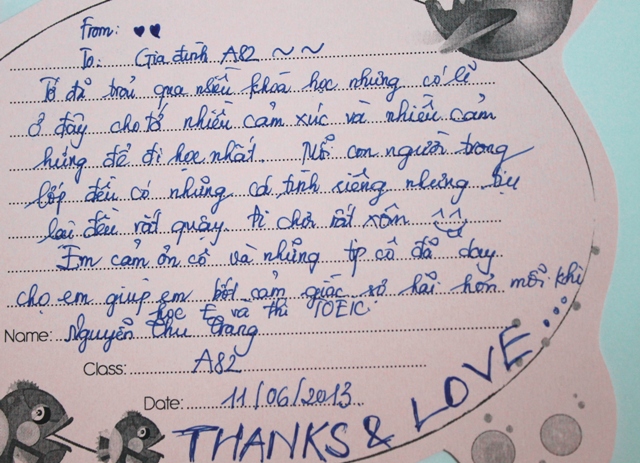 From: ♥♥
To: Gia đình A82 ~ ~
Tớ đã trải qua nhiều khóa học nhưng có lẽ
ở đây cho tớ nhiều cảm xúc và nhiều cảm
hứng để đi học nhất. Mỗi con người trong
lớp đều có những cá tính riêng nhưng tụ
lại đều rất quậy. đi chơi rất xôm ^^
Em cảm ơn cô và những tip cô đã dạy
cho em giúp em bớt cảm giác sợ hãi hơn mỗi khi
học E và thi TOEIC.
Name: Nguyễn Thu Trang
Class: A82
Date: 11/06/2013
THANKS & LOVE...